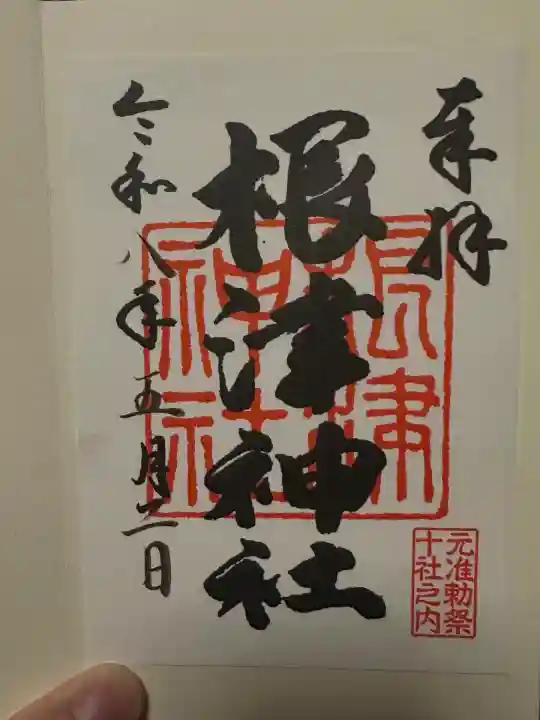 奉拝
根津神社
令和八年五月二日
根津
神社
元准勅祭
十社之内